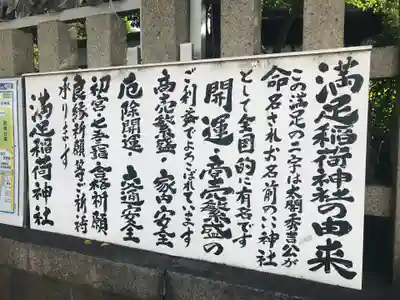 満足稲荷神社の由来
この満足の二字は太閤秀吉公が
命名されお名前のいい神社
として全国的に有名です
開運・商売繁盛の
ご利益でよろこばれています
商売繁盛・家内安全
厄除開運・交通安全
初宮之手詣・合格祈願
良縁祈願等ご祈祷
承ります
満足稲荷神社